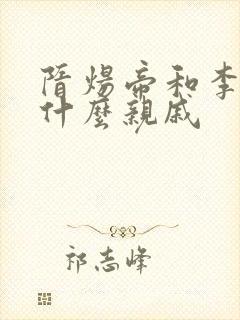 隋煬帝和李
什麼親戚
祁志峰